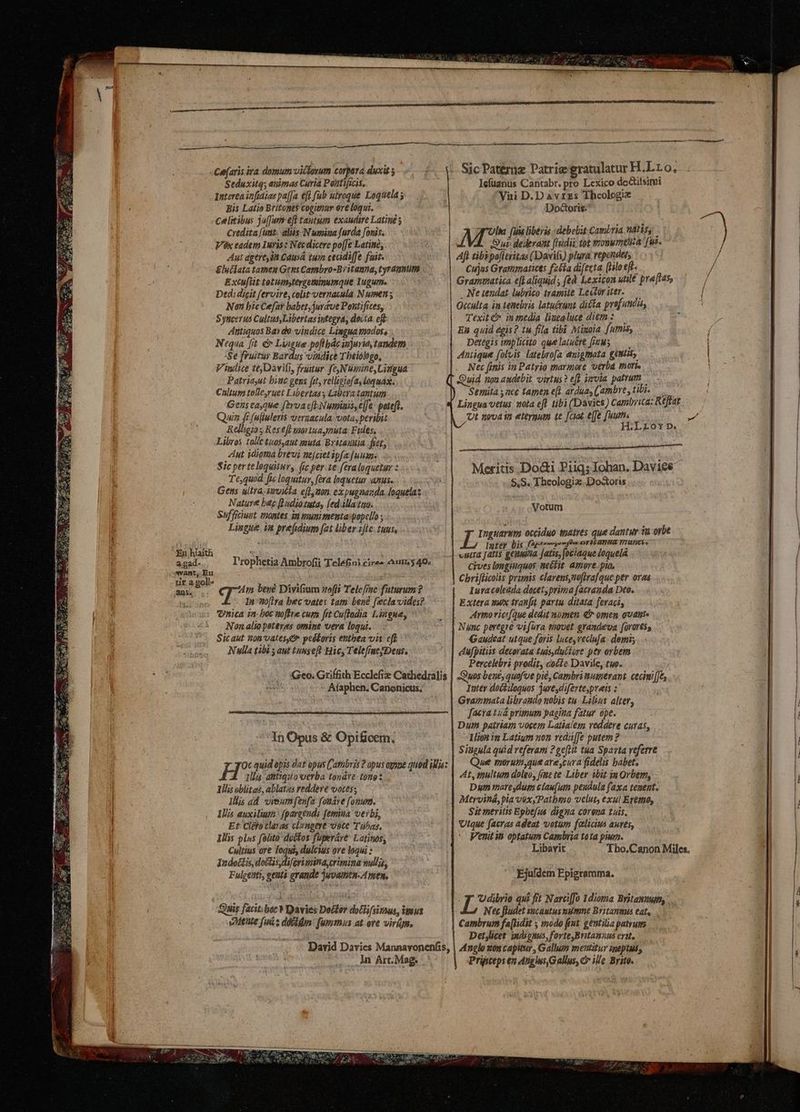 Cæsaris ira domum victorum corpora duxit;
Seduxitq; animas Curia Pontificis.
Interea infidias passa est sub utroque Loquela;
Bis Latio Britones cogimur ore loqui.
Cælitibus jussum est tantum exaudire Latinè;
Credita sunt aliis Numina surda sonis.
Vox eadem Iuris: Nec dicere posse Latinè,
Aut agere, in Causâ tum cecidisse fuit.
Eluctata tamen Gens Cambro-Britanna, tyrannûm
Excussit totum, tergeminumque Iugum.
Dedidigit servire, colit vernacula Numen;
Non hîc Cæsar habet, juráve Pontifices,
Syncerus Cultus, Libertas integra, docta est
Antiquos Bardo vindice Lingua modos.
Nequa sit & Linguæ posthâc injuria, tandem
Se fruitur Bardus vindice Theologo.
Vindice te, Davisi, fruitur se, Numine, Lingua
Patria, ut hinc gens sit, relligiosa, loquax.
Cultum tolle, ruet Libertas; Libera tantum
Gens ea, quæ serva est Numinis, esse potest.
Quin si sustuleris vernacula vota, peribit
Relligio; Res est mortua, muta Fides.
Libros tolle tuos, aut muta Britannia fiet,
Aut idioma brevi nesciet ipsa suum.
Sic per te loquitur, sic per te sera loquetur:
Te, quod sic loquitur, sera loquetur anus.
Gens ultra invicta est, non expugnanda loquela:
Naturæ hæc studio tuta, sed illa tuo.
Sufficiunt montes in munimenta popello;
Linguæ in præsidium sat liber iste tuus.
En hiaith
agad-
want, Eu
tir agoll-
ant.
Prophetia Ambrosii Telesini circa Ann. 540.
Tam benè Divisium nosti Telesine futurum?
In nostra hec vates tam benè secla vides?
Unica in hoc nostræ cum sit Custodia Linguæ,
Non alio poteras omine vera loqui.
Sic aut non vates, & pectoris enthea vis est
Nulla tibi; aut tuus est Hic, Telesine, Deus.
Geo. Griffith Ecclesiæ Cathedralis
Asaphen. Canonicus.
In Opus & Opificem.
HOc quid opis dat opus Cambris? opus omne quod illis:
Illis antiquo verba tonare tono:
Illis oblitas, ablatas reddere voces;
Illis ad vivum sensa sonare sonum.
Illis auxilium spargendi semina verbi,
Et Clero claras clangere voce Tubas.
Illis plus solito doctos superare Latinos,
Cultius ore loqui, dulcius ore loqui:
Indoctis, doctis, discrimina, crimina nullis,
Fulgenti, genti grande juvamen. Amen.
Quis facit hoc? Davies Doctor doctissimus, imus
Mente suâ; doctûm summus at ore virûm.
David Davies Mannavonensis,
In Art. Mag.
Sic Patriæ gratulatur H.LLO.
Iesuanus Cantabr. pro Lexico doctissimi
Viri D. DAVIES Theologiæ
Doctoris.
MUlta suis liberis debebit Cambria natis,
Qui dederant studii tot monumenta sui.
Ast tibi posteritas (Davisi) plura rependet,
Cujus Grammatices facta diserta stilo est.
Grammatica est aliquid; sed Lexicon utilè præstas,
Ne tendat lubrico tramite Lector iter.
Occulta in tenebris latuerunt dicta profundis,
Texit & in media linealuce diem:
En quid egis? tu fila tibi Minoia sumis,
Detegis implicito quæ latuêre sinu;
Antiquæ solvis latebrosa ænigmata gentis,
Nec sinis in Patrio marmore verba mori.
Quid non audebit virtus? est invia patrum
Semita; nec tamen est ardua, Cambre, tibi.
Lingua vetus nota est tibi (Davies) Cambrica: Restat
Ut nova in æternum te sciat esse suum.
H: LLOYD.
Meritis Docti Piiq; Iohan. Davies
S,S. Theologiæ Doctoris
Votum
LInguarum occiduo matres quæ dantur in orbe
Inter bis
cives longinquos nectit amore pio,
Christicolis primis clarens, nostrasque per oras
Iura colenda docet, prima sacranda Deo.
Extera mox transit partu ditata feraci,
Armoricisque dedit nomen & omen ovans.
Nunc peregre visura movet grandæva sorores,
Gaudeat utque foris luce, reclusa domi;
Auspitiis decorata tuis, ductore per orbem
Percelebri prodit, docte Davise, tuo.
Quos benè, quosve piè, Cambri numerant cecinisse,
Inter doctiloquos jure, disertè, præis:
Grammata librando nobis tu Libius alter,
sacra tuâ primum pagina fatur ope.
Dum patriam vocem Latialem reddere curas,
Ilion in Latium non rediisse putem?
Singula quid referam? gestit tua Sparta referre
Quæ morum, quæ aræ, cura fidelis habet.
At, multum doleo, sine te Liber ibit in Orbem,
Dum mare, dum clausum pendula saxa tenent.
Mervinâ, pia vox, Pathmo velut, exul Eremo,
Sit meritis Ephesus digna corona tuis.
Utque sacras adeat votum fælicius aures,
Venit in optatum Cambria tota pium.
Libavit Tho. Canon Miles.
Ejusdem Epigramma.
LUdibrio qui sit Narcisso Idioma Britannum,
Nec studet incautus nùmne Britannus eat.
Cambrum fastidit; modo sint gentilia patrum
Det, licet indignus, forte, Britannus erit.
Anglo non capitur, Gallum mentitur ineptus,
Princeps en Anglus, Gallus, & ille Brito.